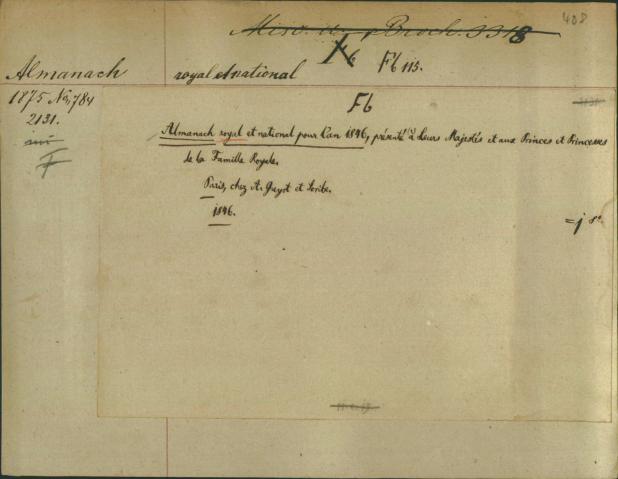 408
Misc. u. Broch. 3318
Fb 115.
Almanach royal et national
1875 No. 784
2131.
F
Fb
Almanach royal et national pour l'an 1846, présenté à Leurs Majestés et aux Princes et Princesses
de la Famille Royale.
Paris, chez A. Guyot et Scribe.
1846.
= j 8°